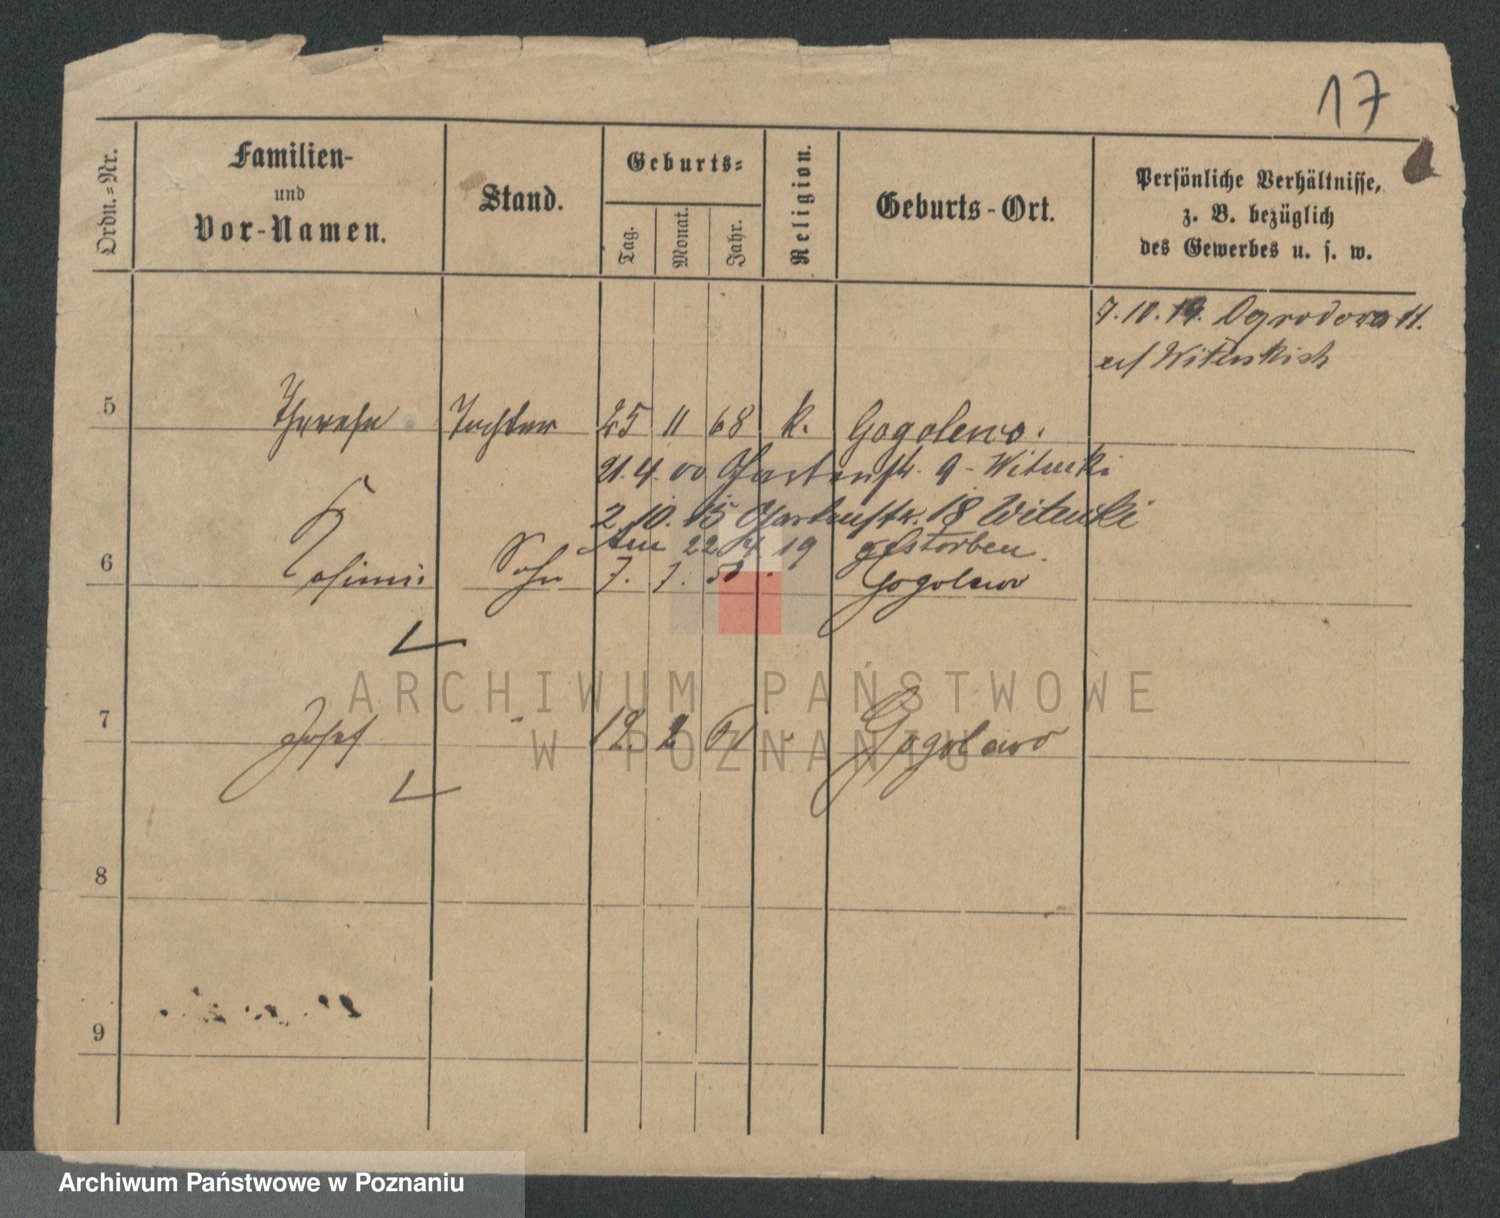 17
Ordn.-Nr.
Familien-
und
Vor-Namen.
Stand.
Geburts-
Tag.
Monat.
Jahr.
Religion.
Geburts-Ort.
Persönliche Verhältnisse,
z. B. bezüglich
des Gewerbes u. s. w.
7.10.19. Ogrodowa 11.
Witenskich
5 Therese Tochter 25 11 68 k. Gogolewo.
21.4.00 Gartenstr. 9 - Witenski
2.10.15 Gartenstr. 18 Witenski
Am 22 4 19 gestorben.
6 Sohn 7. 1. Gogolewo
7 Josef " 12. 2 Gogolewo
8
9
ARCHIWUM PAŃSTWOWE
W POZNANIU
Archiwum Państwowe w Poznaniu